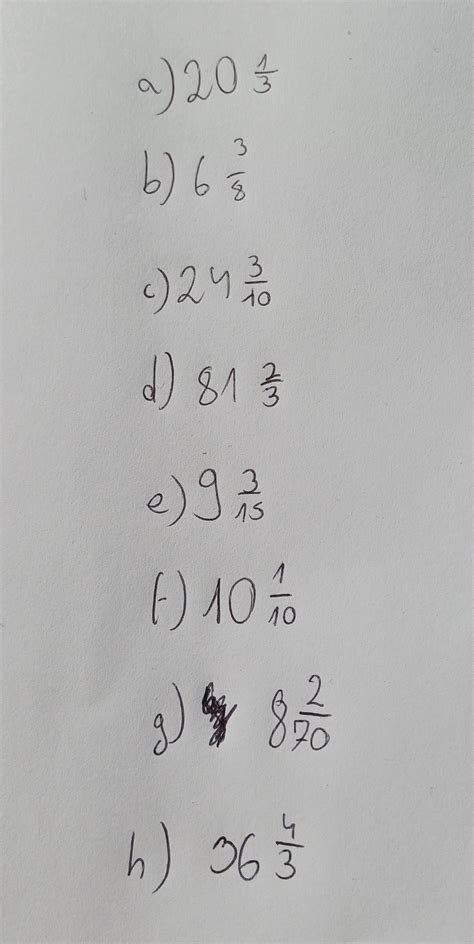 a) 20 1/3
b) 6 3/8
c) 24 3/10
d) 81 2/3
e) 9 3/15
f) 10 1/10
g) 8 2/70
h) 36 4/3